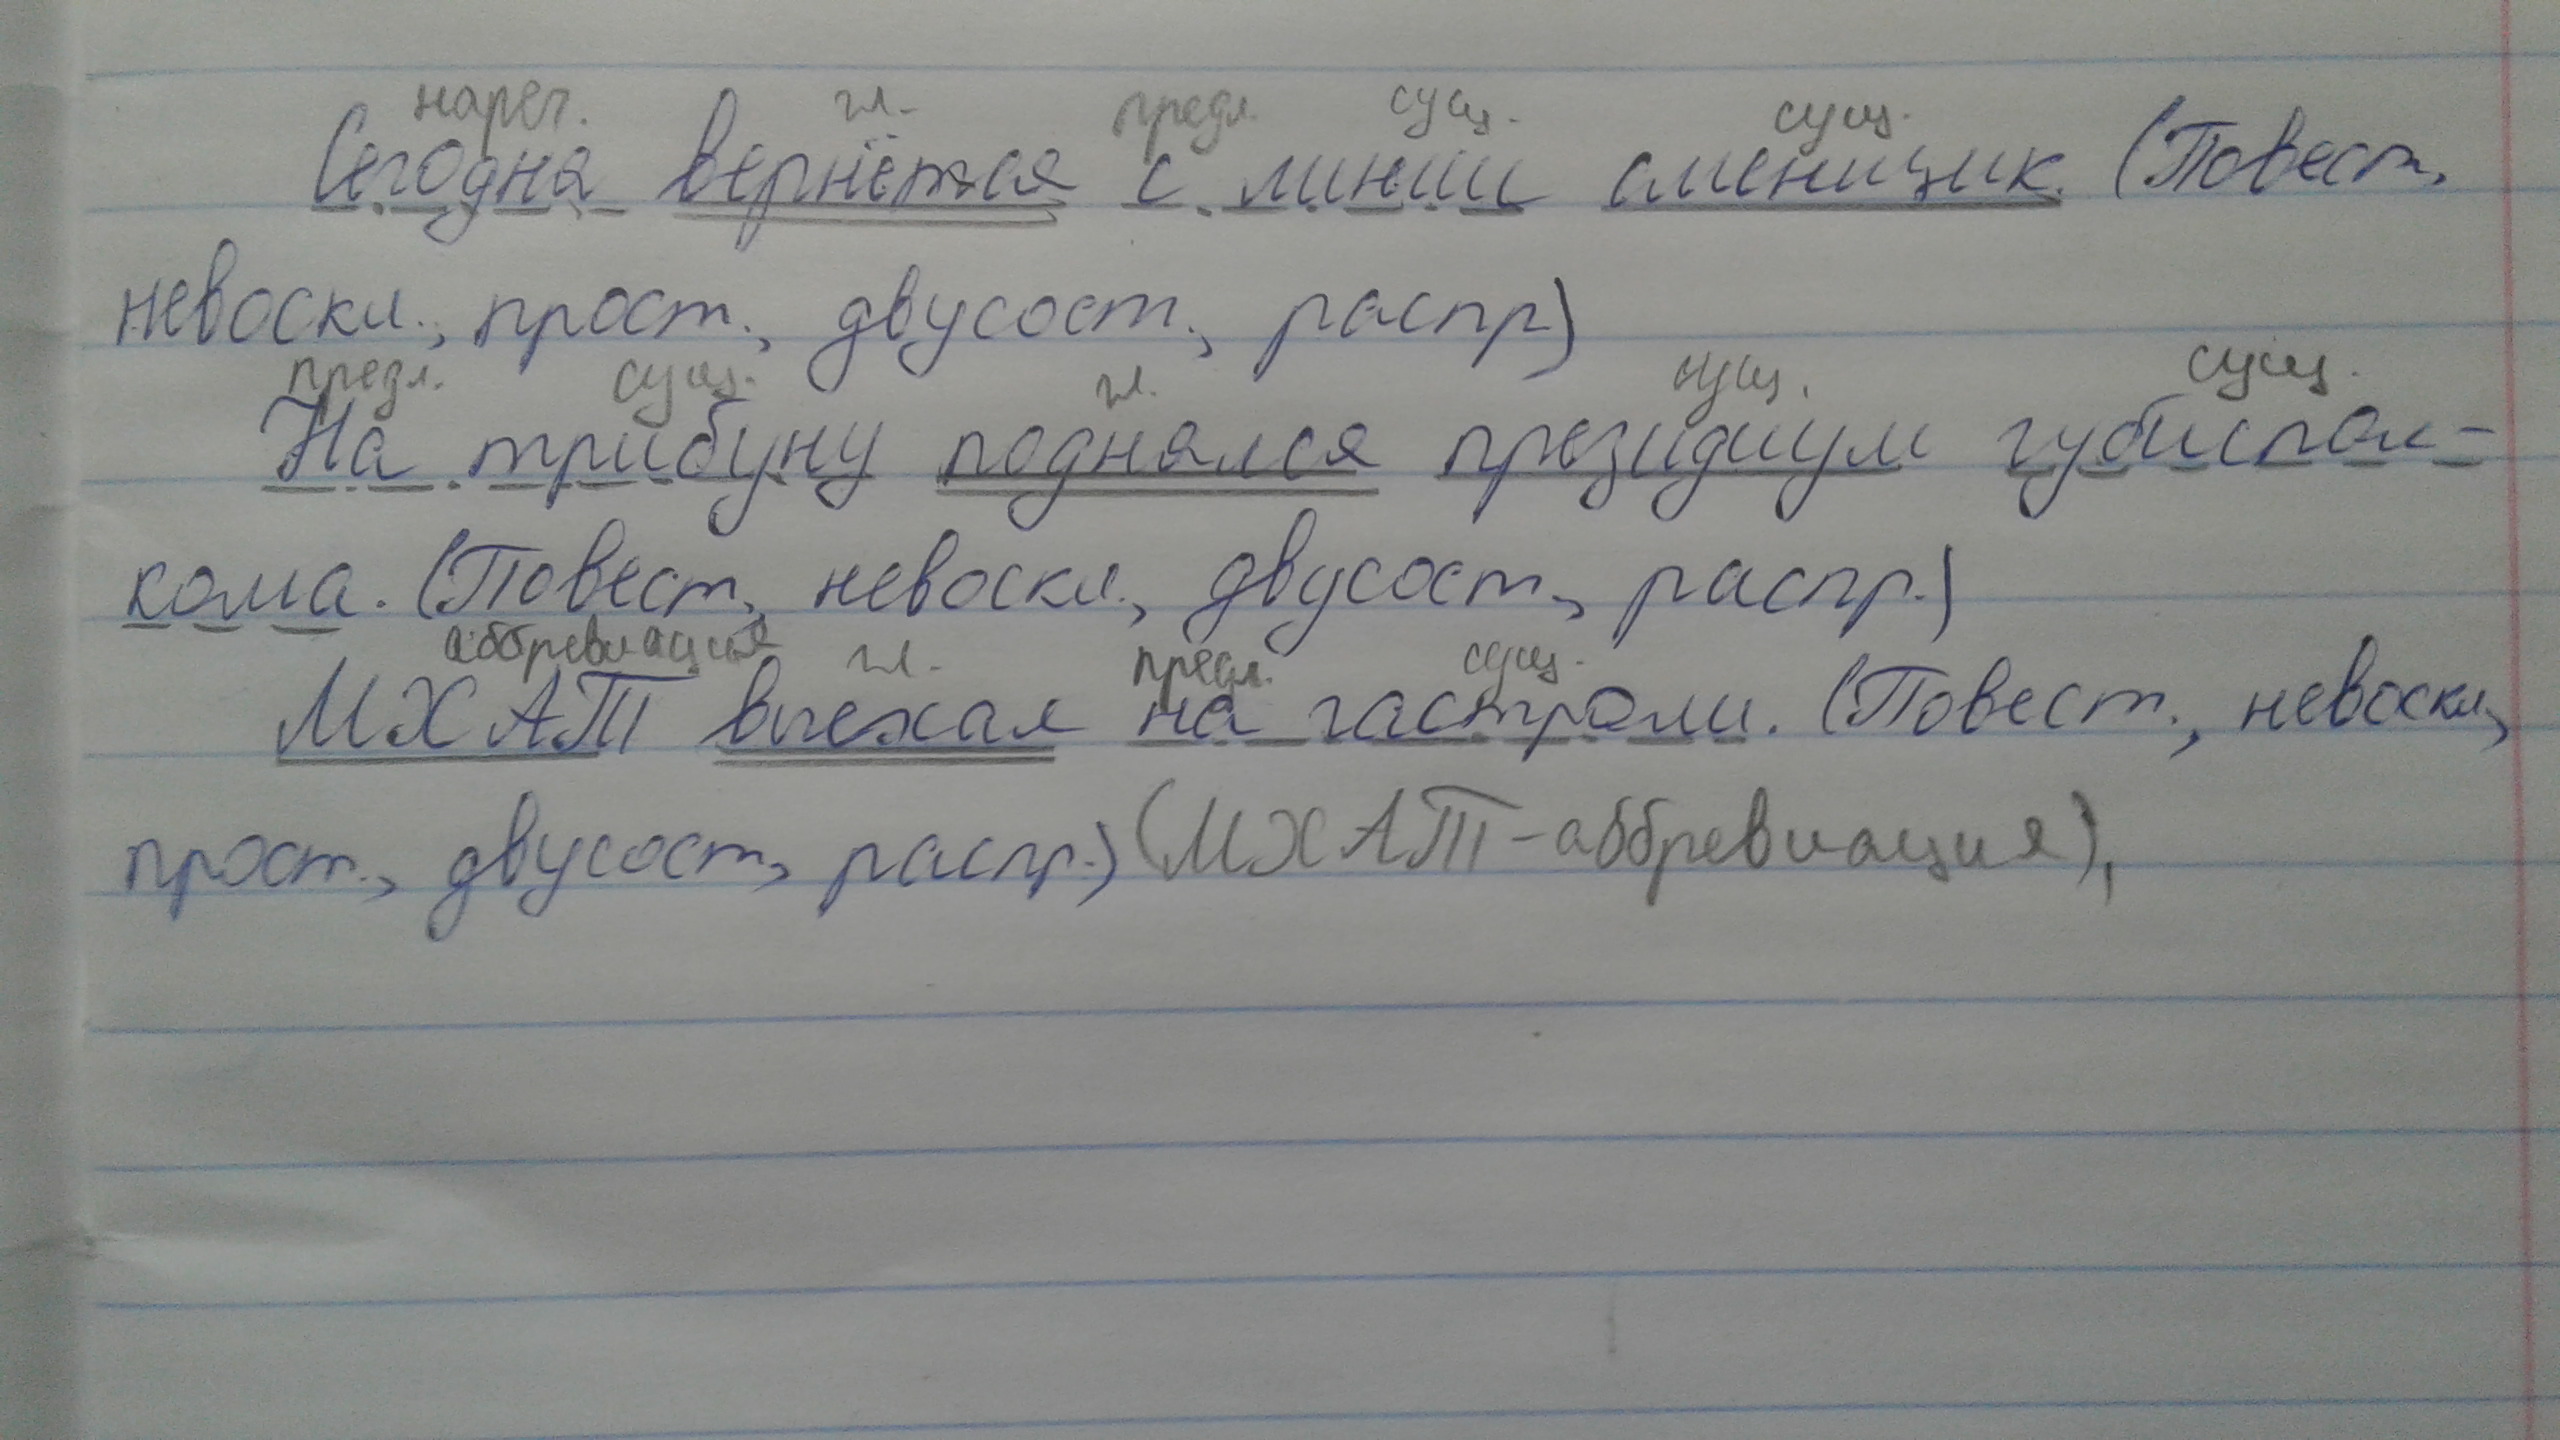 нареч. гл. предл. сущ. сущ.
Сегодня вернётся с линии сменщик. (Повест.,
невоскл., прост., двусост., распр)
предл. сущ. гл. сущ. сущ.
На трибуну поднялся президиум губиспол-
кома. (Повест., невоскл., двусост., распр.)
аббревиация гл. предл. сущ.
МХАТ выехал на гастроли. (Повест., невоскл.,
прост., двусост., распр.) (МХАТ-аббревиация),